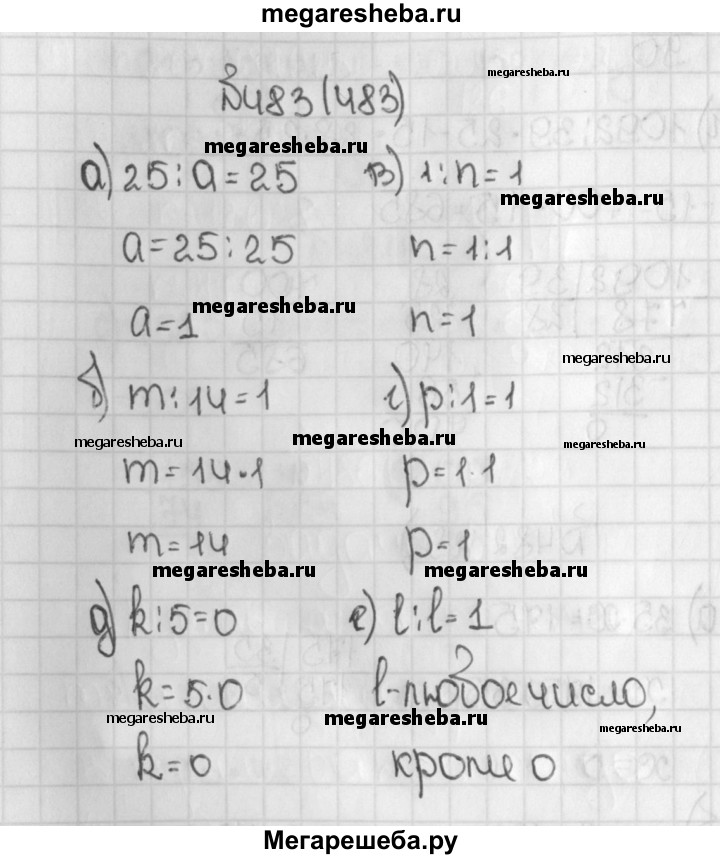 megaresheba.ru
megaresheba.ru
№483 (483)
megaresheba.ru
а) 25 : a = 25 в) 1 : n = 1
megaresheba.ru
a = 25 : 25 n = 1 : 1
megaresheba.ru
a = 1 n = 1
megaresheba.ru
б) m : 14 = 1 г) p : 1 = 1
megaresheba.ru megaresheba.ru megaresheba.ru
m = 14 · 1 p = 1 · 1
m = 14 p = 1
megaresheba.ru megaresheba.ru
д) k : 5 = 0 е) l : l = 1
k = 5 · 0 l - любое число,
megaresheba.ru megaresheba.ru megaresheba.ru
k = 0 кроме 0
Мегарешеба.ру